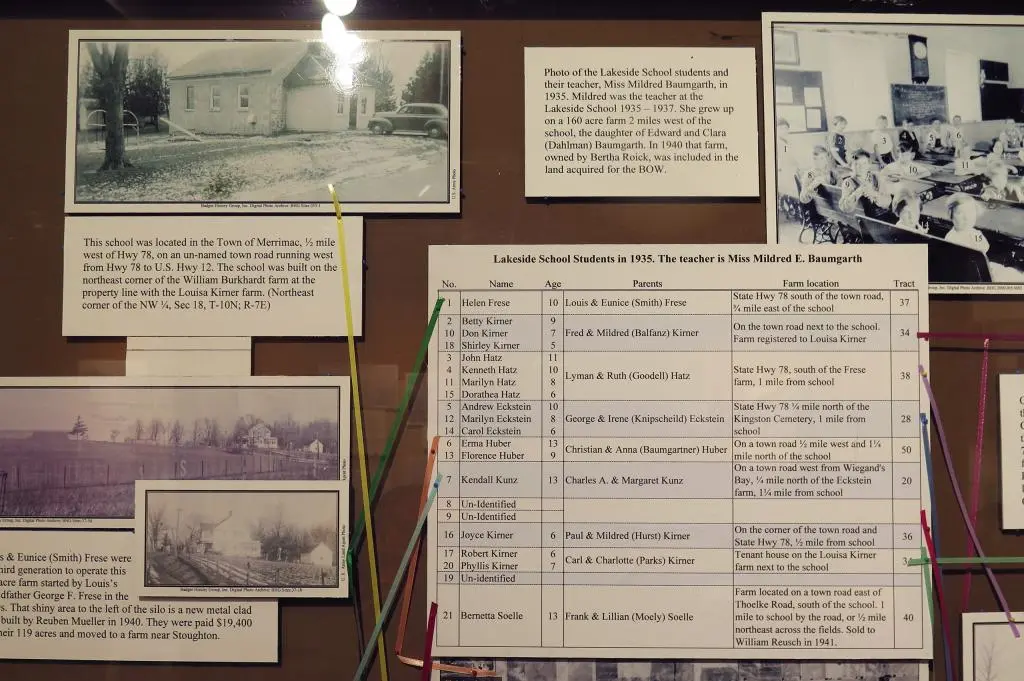 U.S. Army Photo
Badger History Group, Inc. Digital Photo Archive:
This school was located in the Town of Merrimac, ½ mile
west of Hwy 78, on an un-named town road running west
from Hwy 78 to U.S. Hwy 12. The school was built on the
northeast corner of the William Burkhardt farm at the
property line with the Louisa Kirner farm. (Northeast
corner of the NW ¼, Sec 18, T-10N; R-7E)
Photo of the Lakeside School students and
their teacher, Miss Mildred Baumgarth, in
1935. Mildred was the teacher at the
Lakeside School 1935 – 1937. She grew up
on a 160 acre farm 2 miles west of the
school, the daughter of Edward and Clara
(Dahlman) Baumgarth. In 1940 that farm,
owned by Bertha Roick, was included in the
land acquired for the BOW.
1
3
5
6
10
11
15
Lakeside School Students in 1935. The teacher is Miss Mildred E. Baumgarth
No. Name Age Parents Farm location Tract
1 Helen Frese 10 Louis & Eunice (Smith) Frese State Hwy 78 south of the town road, 37
¾ mile east of the school
2 Betty Kirner 9
10 Don Kirner 7 Fred & Mildred (Balfanz) Kirner On the town road next to the school. 34
18 Shirley Kirner 5 Farm registered to Louisa Kirner
3 John Hatz 11
4 Kenneth Hatz 10
11 Marilyn Hatz 8 Lyman & Ruth (Goodell) Hatz State Hwy 78, south of the Frese 38
15 Dorathea Hatz 6 farm, 1 mile from school
5 Andrew Eckstein 10 State Hwy 78 ¼ mile north of the
12 Marilyn Eckstein 8 George & Irene (Knipscheild) Eckstein Kingston Cemetery, 1 mile from 28
14 Carol Eckstein 6 school
6 Erma Huber 13 Christian & Anna (Baumgartner) Huber On a town road ½ mile west and 1¼ 50
13 Florence Huber 9 mile north of the school
7 Kendall Kunz 13 Charles A. & Margaret Kunz On a town road west from Wiegand's 20
Bay, ¼ mile north of the Eckstein
farm, 1¼ mile from school
8 Un-Identified
9 Un-Identified
16 Joyce Kirner 6 Paul & Mildred (Hurst) Kirner On the corner of the town road and 36
State Hwy 78, ½ mile from school
17 Robert Kirner 6 Carl & Charlotte (Parks) Kirner Tenant house on the Louisa Kirner
20 Phyllis Kirner 7 farm next to the school
19 Un-identified
21 Bernetta Soelle 13 Frank & Lillian (Moely) Soelle Farm located on a town road east of 40
Thoelke Road, south of the school. 1
mile to school by the road, or ½ mile
northeast across the fields. Sold to
William Reusch in 1941.
Group, Inc. Digital Photo Archive:
Badger History Group, Inc. Digital Photo Archive:
s & Eunice (Smith) Frese were
hird generation to operate this
acre farm started by Louis's
dfather George F. Frese in the
s. That shiny area to the left of the silo is a new metal clad
built by Reuben Mueller in 1940. They were paid $19,400
heir 119 acres and moved to a farm near Stoughton.